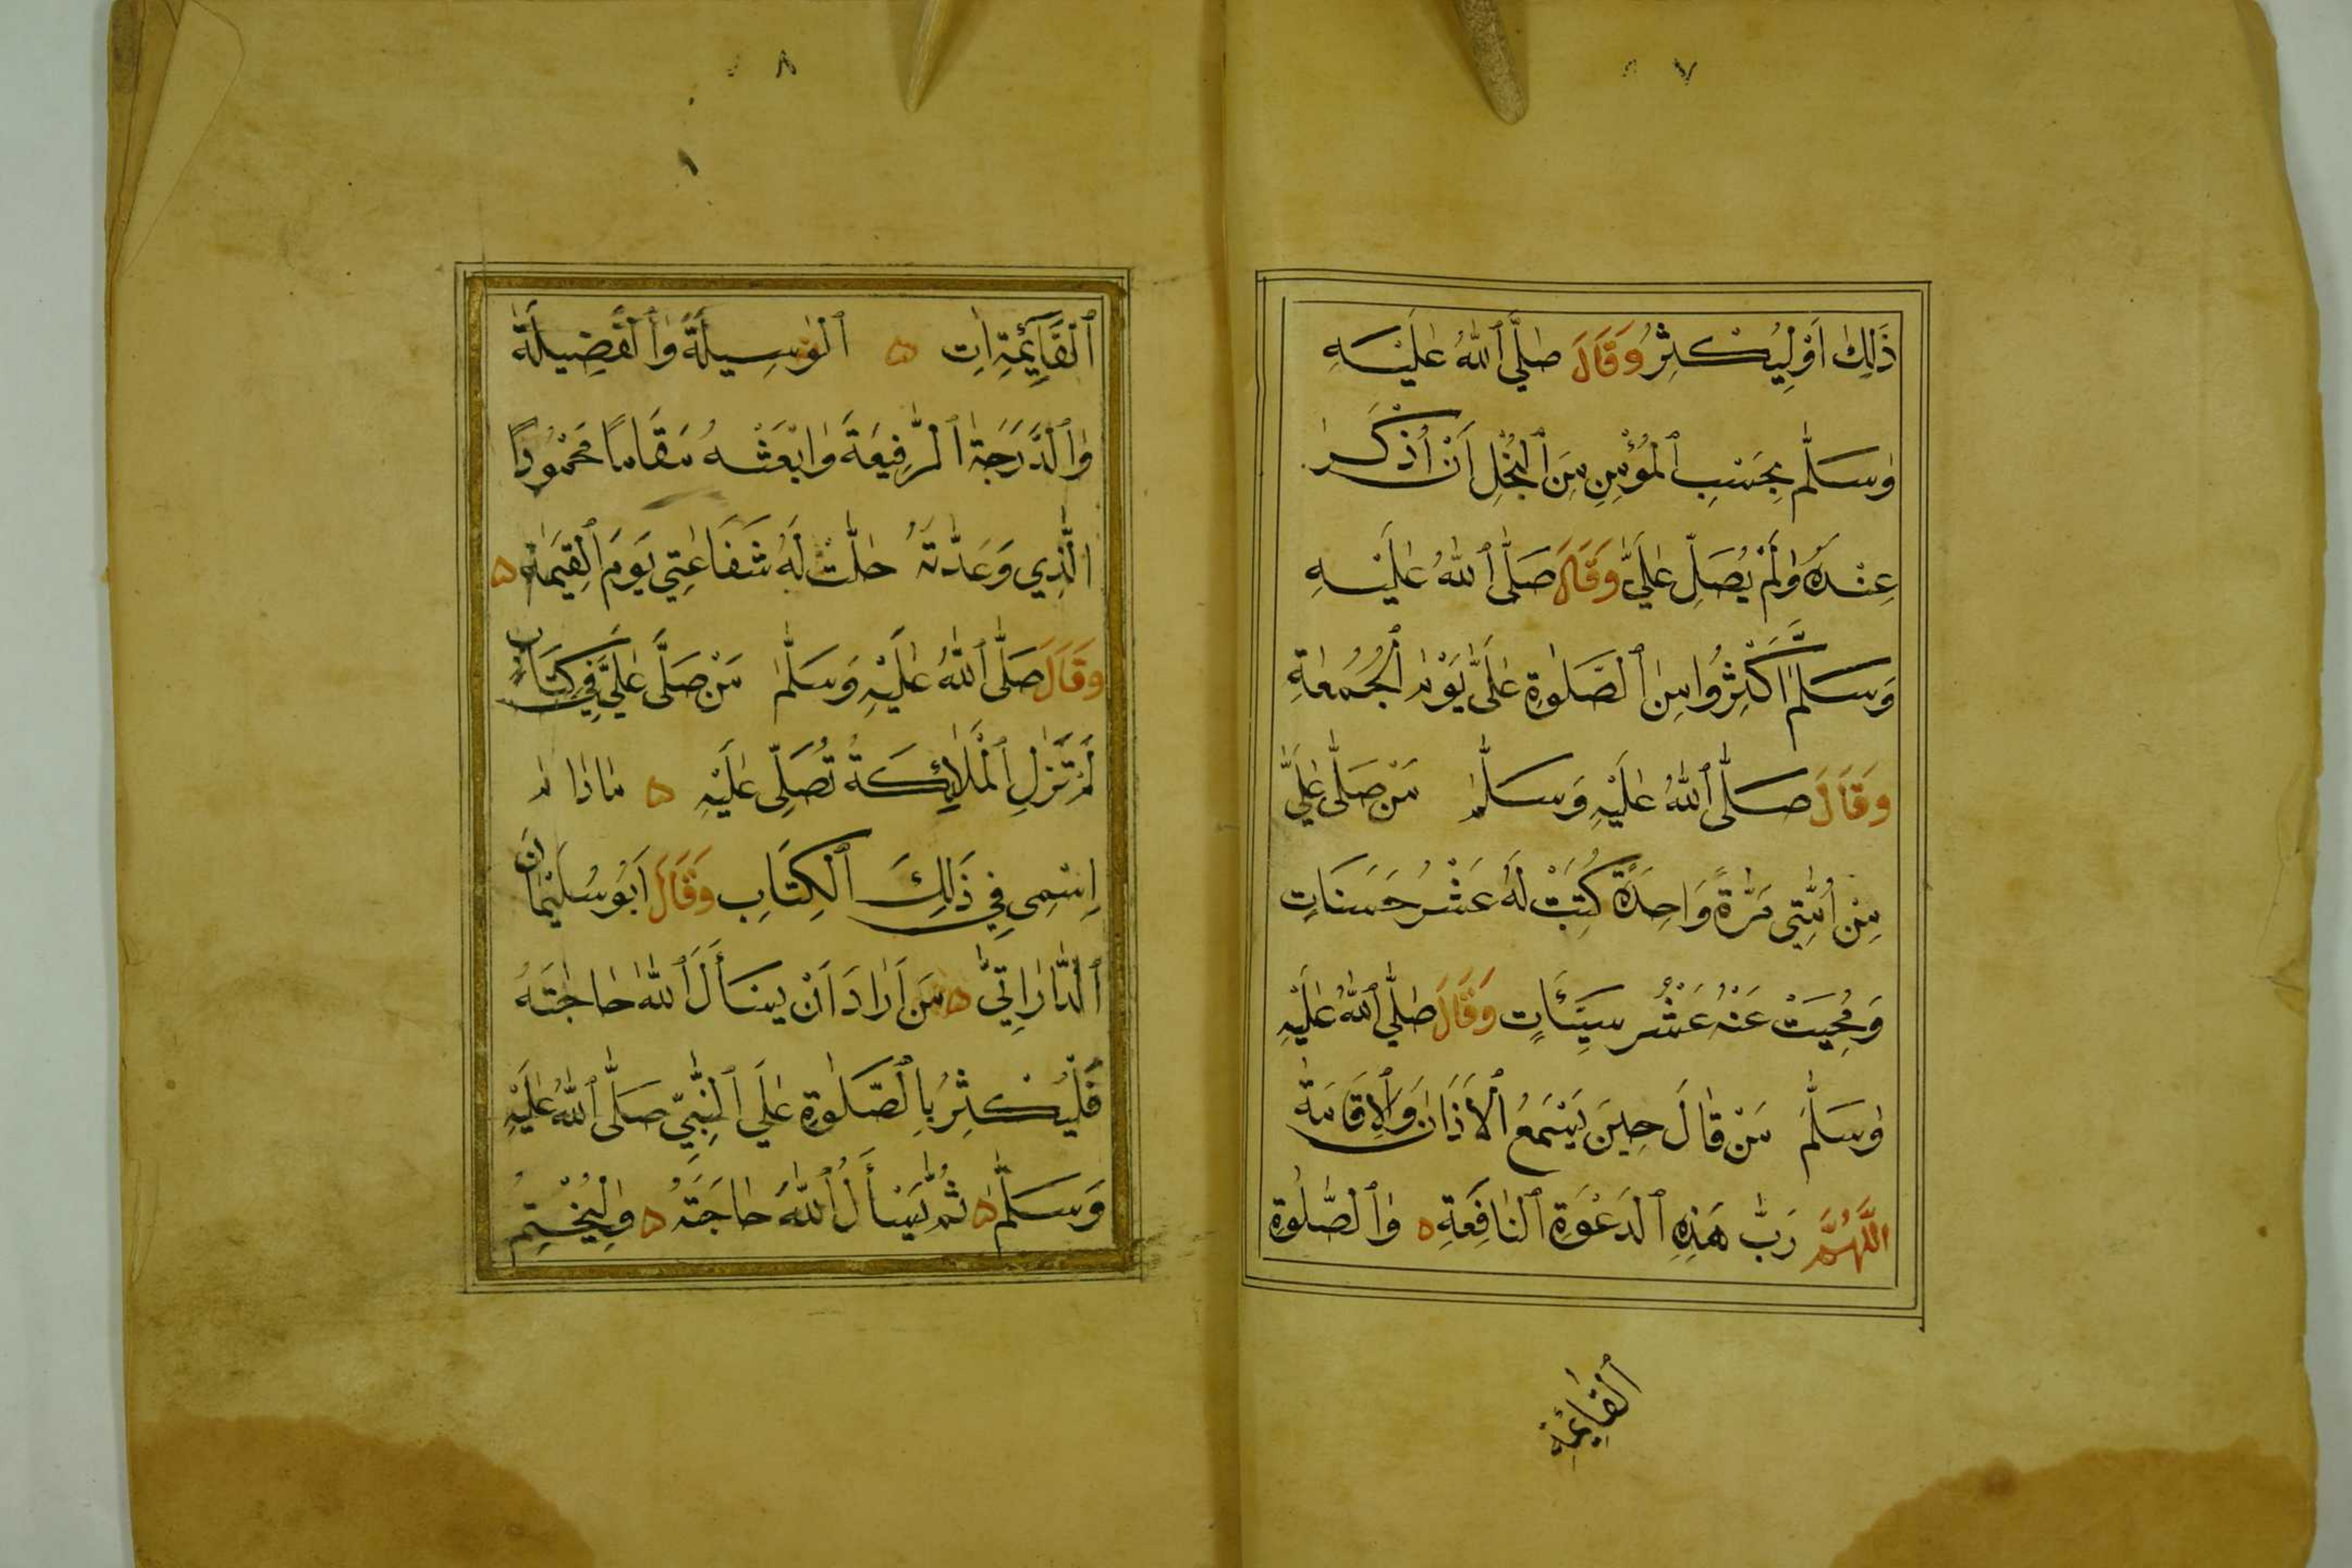 ٧
ذَلِكَ اَوْ لِيُكْثِرُ وَقَالَ صَلَّى ٱللهُ عَلَيْهِ
وَسَلَّمَ بِحَسْبِ ٱلْمُؤْمِنِ مِنَ ٱلْبُخْلِ اَنْ اُذْكَرَ
عِنْدَهُ وَلَمْ يُصَلِّ عَلَيَّ وَقَالَ صَلَّى ٱللهُ عَلَيْهِ
وَسَلَّمَ اَكْثِرُوا مِنَ ٱلصَّلٰوةِ عَلَيَّ يَوْمَ ٱلْجُمُعَةِ
وَقَالَ صَلَّى ٱللهُ عَلَيْهِ وَسَلَّمَ مَنْ صَلَّى عَلَيَّ
مِنْ اُمَّتِي مَرَّةً وَاحِدَةً كُتِبَتْ لَهُ عَشْرُ حَسَنَاتٍ
وَمُحِيَتْ عَنْهُ عَشْرُ سَيِّئَاتٍ وَقَالَ صَلَّى ٱللهُ عَلَيْهِ
وَسَلَّمَ مَنْ قَالَ حِينَ يَسْمَعُ ٱلْاَذَانَ وَٱلْاِقَامَةَ
اللَّهُمَّ رَبَّ هَذِهِ ٱلدَعْوَةِ ٱلنَافِعَةِ ه وَٱلصَّلٰوةِ
ٱلْقَائِمَةِ
٨
ٱلْقَآئِمَةِ اٰتِ ه ٱلْوَسِيلَةَ وَٱلْفَضِيلَةَ
وَٱلدَّرَجَةَ ٱلرَّفِيعَةَ وَابْعَثْهُ مَقَامًا مَحْمُودًا
الَّذِي وَعَدْتَهُ حَلَّتْ لَهُ شَفَاعَتِي يَوْمَ ٱلْقِيٰمَةِ ه
وَقَالَ صَلَّى ٱللهُ عَلَيْهِ وَسَلَّمَ مَنْ صَلَّى عَلَيَّ فِي كِتَابٍ
لَمْ تَزَلِ ٱلْمَلَائِكَةُ تُصَلِّي عَلَيْهِ ه مَادَامَ
اِسْمِي فِي ذَلِكَ ٱلْكِتَابِ وَقَالَ اَبُو سُلَيْمَانَ
ٱلدَّارَانِيُّ ه مَنْ اَرَادَ اَنْ يَسْأَلَ ٱللهَ حَاجَتَهُ
فَلْيُكْثِرْ بِالصَّلٰوةِ عَلَى ٱلنَّبِيِّ صَلَّى ٱللهُ عَلَيْهِ
وَسَلَّمَ ه ثُمَّ يَسْأَلُ ٱللهَ حَاجَتَهُ ه وَلْيَخْتِمْ